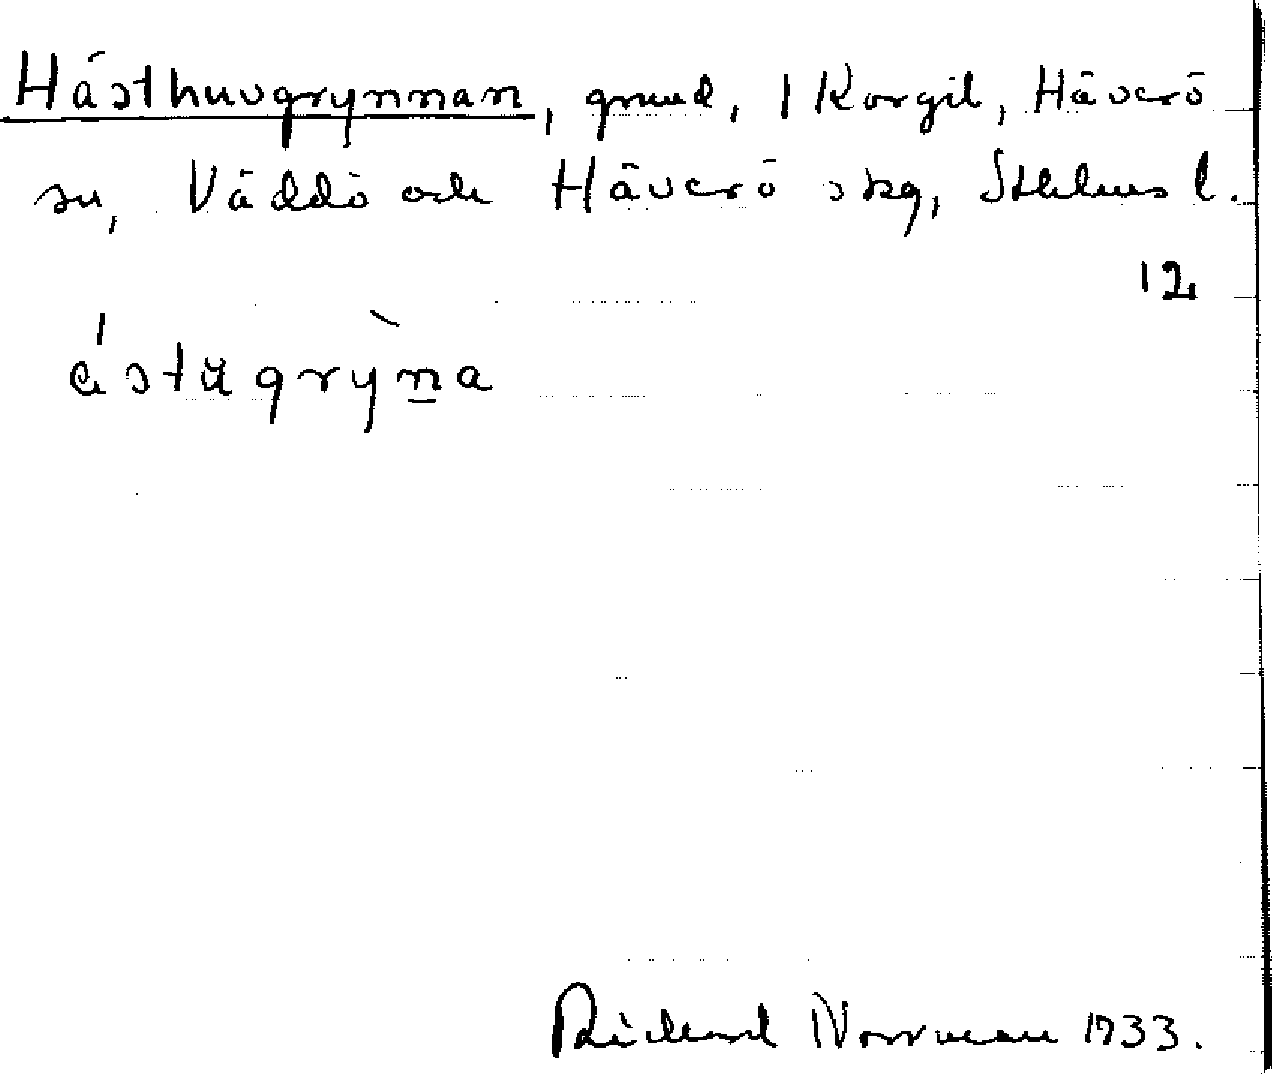 Hästhuvgrynnan, grund, 1 Korgil, Häverö
sn, Väddö och Häverö skg, Sthlms l.
12
ástʉgrỳna
Rickard Norrman 1933.